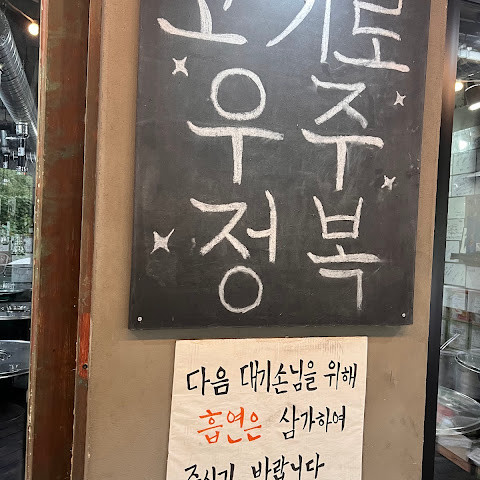 고기로
우주
정복
다음 대기손님을 위해
흡연은 삼가하여
주시기 바랍니다